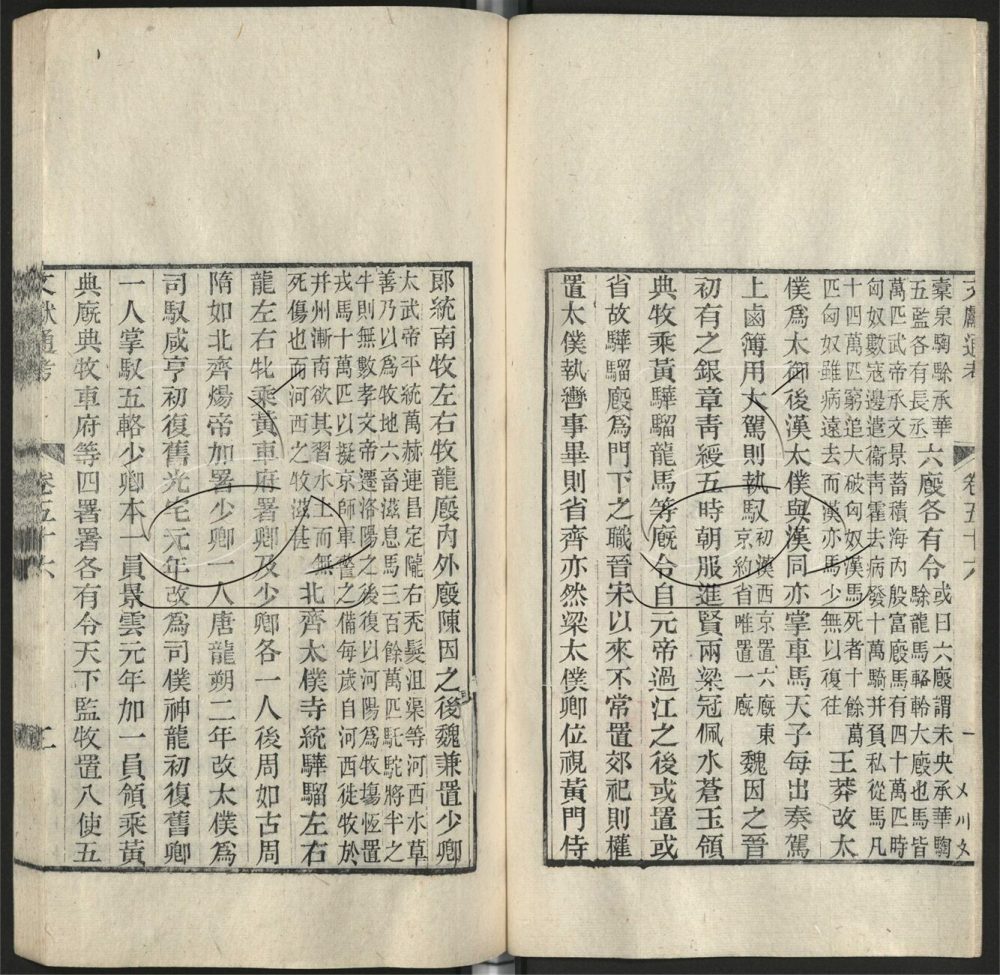 文獻通考 卷五十六 一
橐泉騊駼承華
五監各有長丞
六廄各有令
或曰六廄謂未央承華騊
駼龍馬輅軨大廄也馬皆
萬匹武帝承文景蓄積海內殷富廄馬有四十萬匹時
匈奴數寇邊遣衞青霍去病發十萬騎并負私從馬凡
十四萬匹窮追大破匈奴漢馬死者十餘萬
匹匈奴雖病遠去而漢亦馬少無以復往
王莽改太
僕爲太御後漢太僕與漢同亦掌車馬天子每出奏駕
上鹵簿用大駕則執馭
初漢西京置六廄東
京約省唯置一廄
魏因之晉
初有之銀章靑綬五時朝服進賢兩梁冠佩水蒼玉領
典牧乘黃驊騮龍馬等廄令自元帝過江之後或置或
省故驊騮廄爲門下之職晉宋以來不常置郊祀則權
置太僕執轡事畢則省齊亦然梁太僕卿位視黃門侍
郎統南牧左右牧龍廄內外廄陳因之後魏兼置少卿
太武帝平統萬赫連昌定隴右禿髮沮渠等河西水草
善乃以爲牧地六畜滋息馬三百餘萬匹駝將半之
牛則無數孝文帝遷洛陽之後復以河陽爲牧場恆置
戎馬十萬匹以擬京師軍警之備每歲自河西徙牧於
并州漸南欲其習水土而無
死傷也而河西之牧滋甚
北齊太僕寺統驊騮左右
龍左右牝乘黃車府署卿及少卿各一人後周如古周
隋如北齊煬帝加署少卿一人唐龍朔二年改太僕爲
司馭咸亨初復舊光宅元年改爲司僕神龍初復舊卿
一人掌馭五輅少卿本一員景雲元年加一員領乘黃
典廄典牧車府等四署署各有令天下監牧置八使五
文獻通考 卷五十六